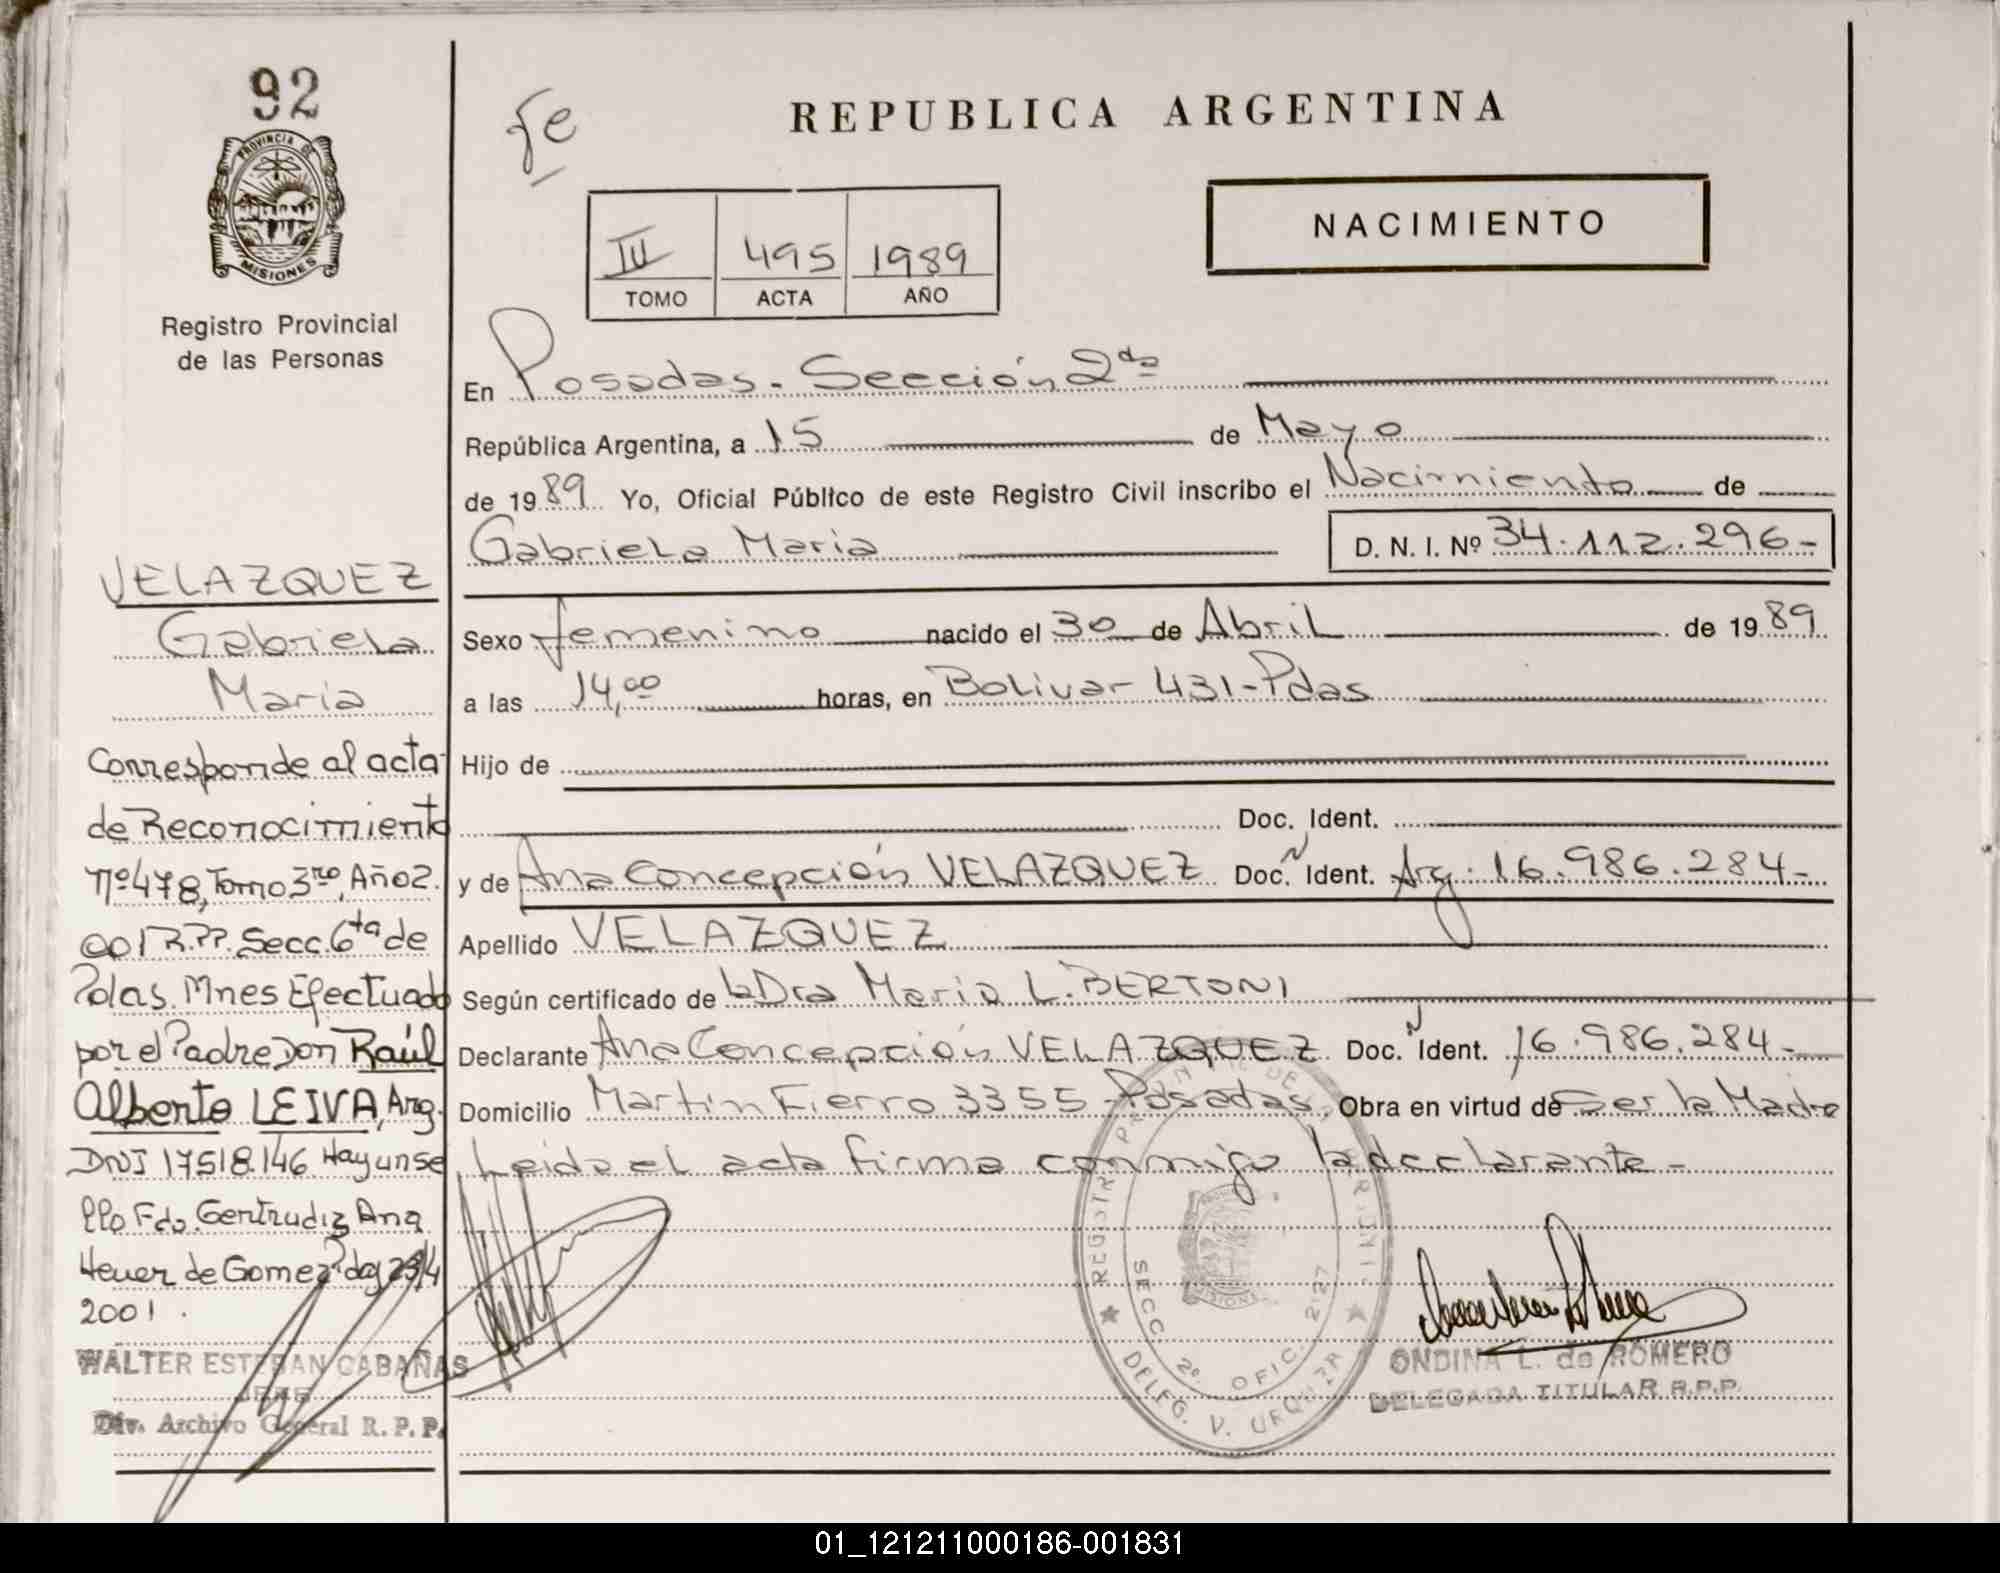 92
PROVINCIA DE
MISIONES
Registro Provincial
de las Personas
VELAZQUEZ
Gabriela
Maria
Corresponde al acta
de Reconocimiento
nº 478, Tomo 3ro, Año 2.
001 R.P.P. Secc. 6ta de
Pdas. Mnes Efectuado
por el Padre Don Raúl
Alberto LEIVA, Arg.
DNI 17.518.146. Hay un se
llo Fdo. Gertrudiz Ana
Heuer de Gomez Pdas 23/4
2001.
WALTER ESTEBAN CABAÑAS
JEFE
Div. Archivo General R. P. P.
Fe
REPUBLICA ARGENTINA
NACIMIENTO
III 495 1989
TOMO ACTA AÑO
En Posadas - Sección 2da
República Argentina, a 15 de Mayo
de 1989 Yo, Oficial Público de este Registro Civil inscribo el Nacimiento de
Gabriela Maria D. N. I. Nº 34.112.296-
Sexo femenino nacido el 30 de Abril de 1989
a las 14,00 horas, en Bolivar 431-Pdas
Hijo de
Doc. Ident.
y de Ana Concepción VELAZQUEZ Doc. N Ident. Arg. 16.986.284-
Apellido VELAZQUEZ
Según certificado de la Dra Maria L. BERTONI
Declarante Ana Concepción VELAZQUEZ Doc. N Ident. 16.986.284-
Domicilio Martín Fierro 3355-Posadas Obra en virtud de Ser la Madre
Leida el acta firma conmigo la declarante-
SECC. 2º. OFIC. 2127
DELEG. V. URQUIZA
MISIONES
ONDINA L. de ROMERO
DELEGADA TITULAR R.P.P.
01_121211000186-001831